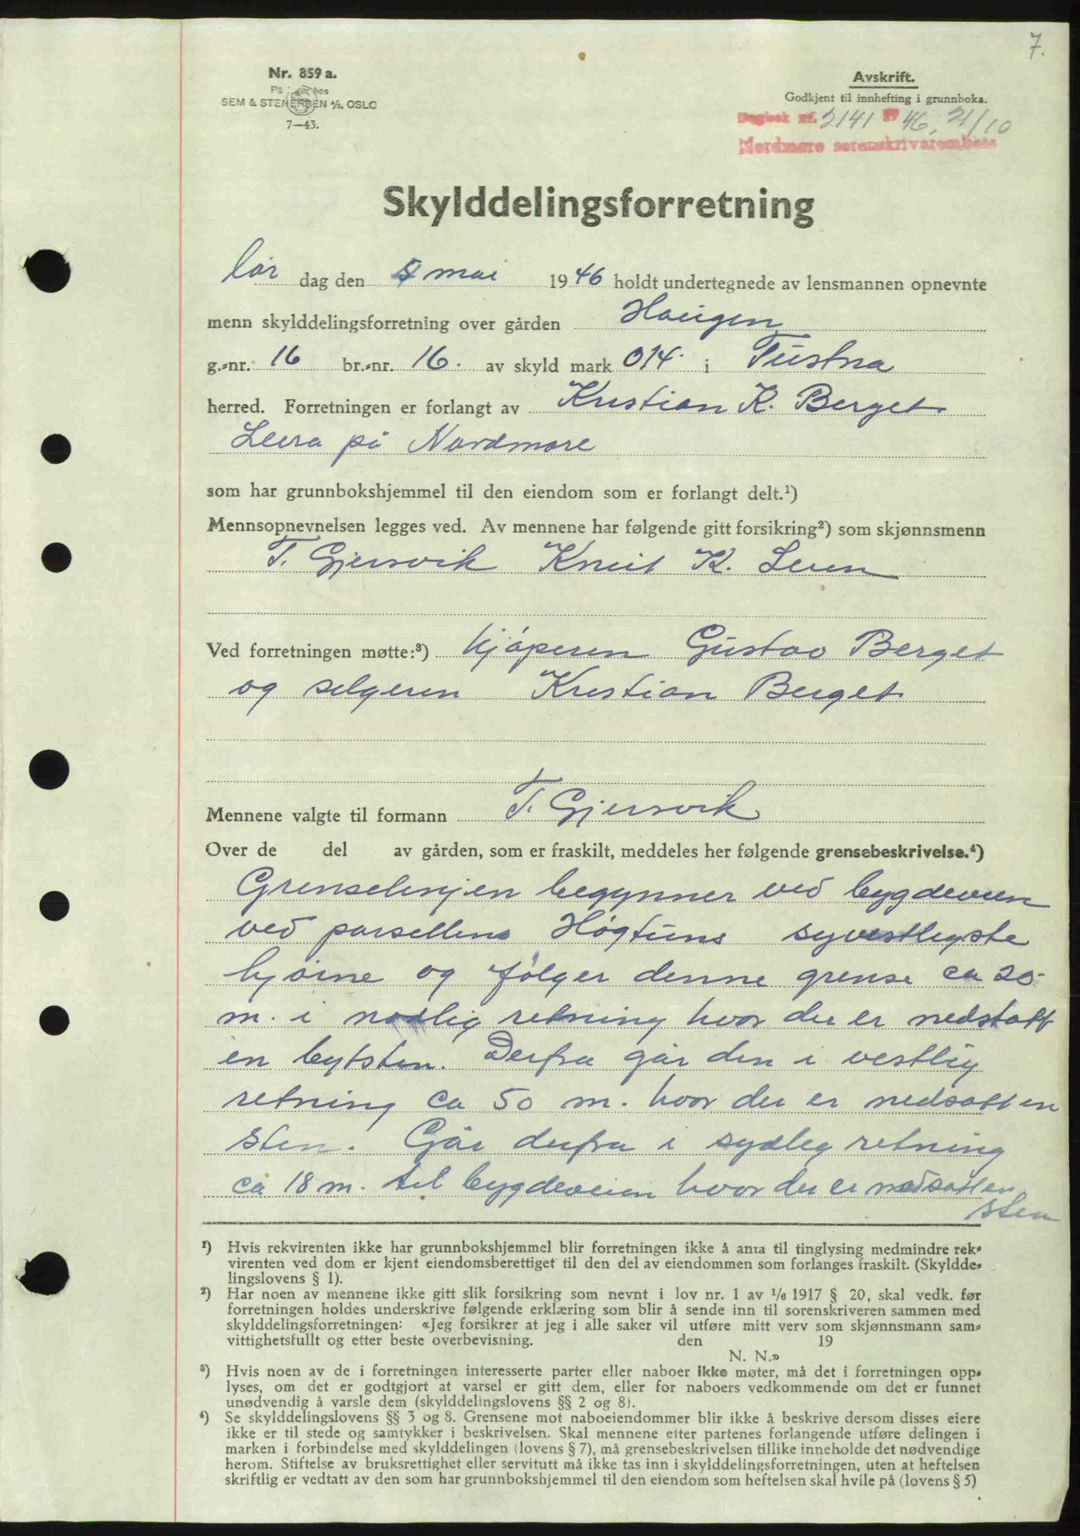 7.
Nr. 859 a.
Avskrift.
Godkjent til innhefting i grunnboka.
SEM & STENERSEN A/S, OSLO
7—43.
Dagbok nr. 2141 19 46, 21/10
Nordmøre sorenskrivarembete
Skylddelingsforretning
lør dag den 4 mai 1946 holdt undertegnede av lensmannen opnevnte
menn skylddelingsforretning over gården Haugen
g.-nr. 16 br.-nr. 16. av skyld mark 014. i Tustna
herred. Forretningen er forlangt av Kristian K. Berget
Leira på Nordmøre
som har grunnbokshjemmel til den eiendom som er forlangt delt.¹)
Mennsopnevnelsen legges ved. Av mennene har følgende gitt forsikring²) som skjønnsmenn
T. Gjersvik Knut K. Leren
Ved forretningen møtte:³) Kjøperen Gustav Berget
og selgeren Kristian Berget
Mennene valgte til formann T. Gjersvik
Over de del av gården, som er fraskilt, meddeles her følgende grensebeskrivelse.⁴)
Grenselinjen begynner ved bygdeveien
ved parsellens Høgtuns sydvestligste
hjørne og følger denne grense ca 20
m. i nordlig retning hvor der er nedsatt
en bytsten. Derfra går den i vestlig
retning ca 50 m. hvor der er nedsatt en
sten. Går derfra i sydleg retning
ca 18 m. til bygdeveien hvor der er nedsatt en
sten
¹) Hvis rekvirenten ikke har grunnbokshjemmel blir forretningen ikke å anta til tinglysing medmindre rek-
virenten ved dom er kjent eiendomsberettiget til den del av eiendommen som forlanges fraskilt. (Skyldde-
lingslovens § 1).
²) Har noen av mennene ikke gitt slik forsikring som nevnt i lov nr. 1 av 1/6 1917 § 20, skal vedk. før
forretningen holdes underskrive følgende erklæring som blir å sende inn til sorenskriveren sammen med
skylddelingsforretningen: «Jeg forsikrer at jeg i alle saker vil utføre mitt verv som skjønnsmann sam-
vittighetsfullt og etter beste overbevisning. den 19
N. N.»
³) Hvis noen av de i forretningen interesserte parter eller naboer ikke møter, må det i forretningen opp-
lyses, om det er godtgjort at varsel er gitt dem, eller for naboers vedkommende om det er funnet
unødvendig å varsle dem (skylddelingslovens §§ 2 og 8).
⁴) Se skylddelingslovens §§ 3 og 8. Grensene mot naboeiendommer blir ikke å beskrive dersom disses eiere
ikke er til stede og samtykker i beskrivelsen. Skal mennene etter partenes forlangende utføre delingen i
marken i forbindelse med skylddelingen (lovens § 7), må grensebeskrivelsen tillike inneholde det nødvendige
herom. Stiftelse av bruksrettighet eller servitutt må ikke tas inn i skylddelingsforretningen, uten at heftelsen
skriftlig er vedtatt av den som har grunnbokshjemmel til den eiendom som heftelsen skal hvile på (lovens § 5)